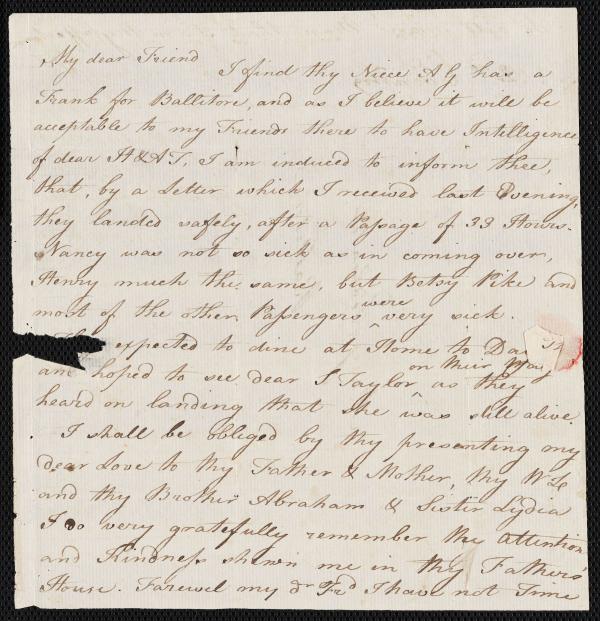 My dear Friend I find thy Niece A G has a
Frank for Ballitore, and as I believe it will be
acceptable to my Friends there to have Intelligence
of dear H & A T, I am induced to inform thee,
that, by a Letter which I received last Evening,
they landed safely, after a Passage of 33 Hours.
Nancy was not so sick as in coming over,
Henry much the same, but Betsy Pike and
most of the other Passengers were very sick.
expected to dine at Home to Day
and hoped to see dear S Taylor on their Way as they
heard on landing that she was still alive.
I shall be obliged by thy presenting my
dear Love to thy Father & Mother, thy Wife
and thy Brother Abraham & Sister Lydia
I do very gratefully remember the attention
and Kindness shewn me in thy Fathers'
House. Farewel my dr Frd I have not Time